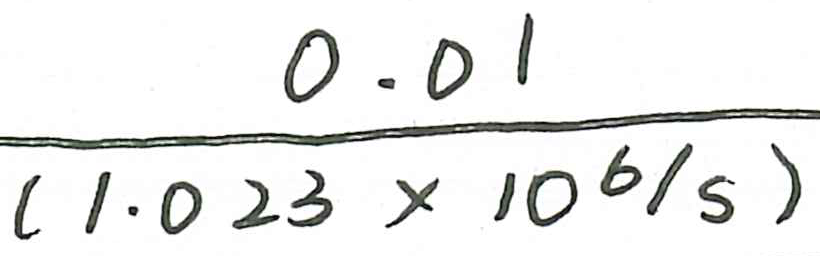 0.01
(1.023 × 10^6/s)